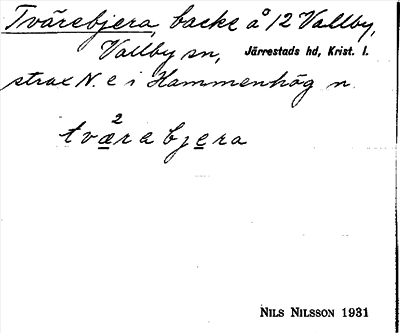 Tvärebjera, backe å 12 Vallby,
Vallby sn, Järrestads hd, Krist. l.
strax N. e i Hammenhög n.
2
tværabjera
NILS NILSSON 1931